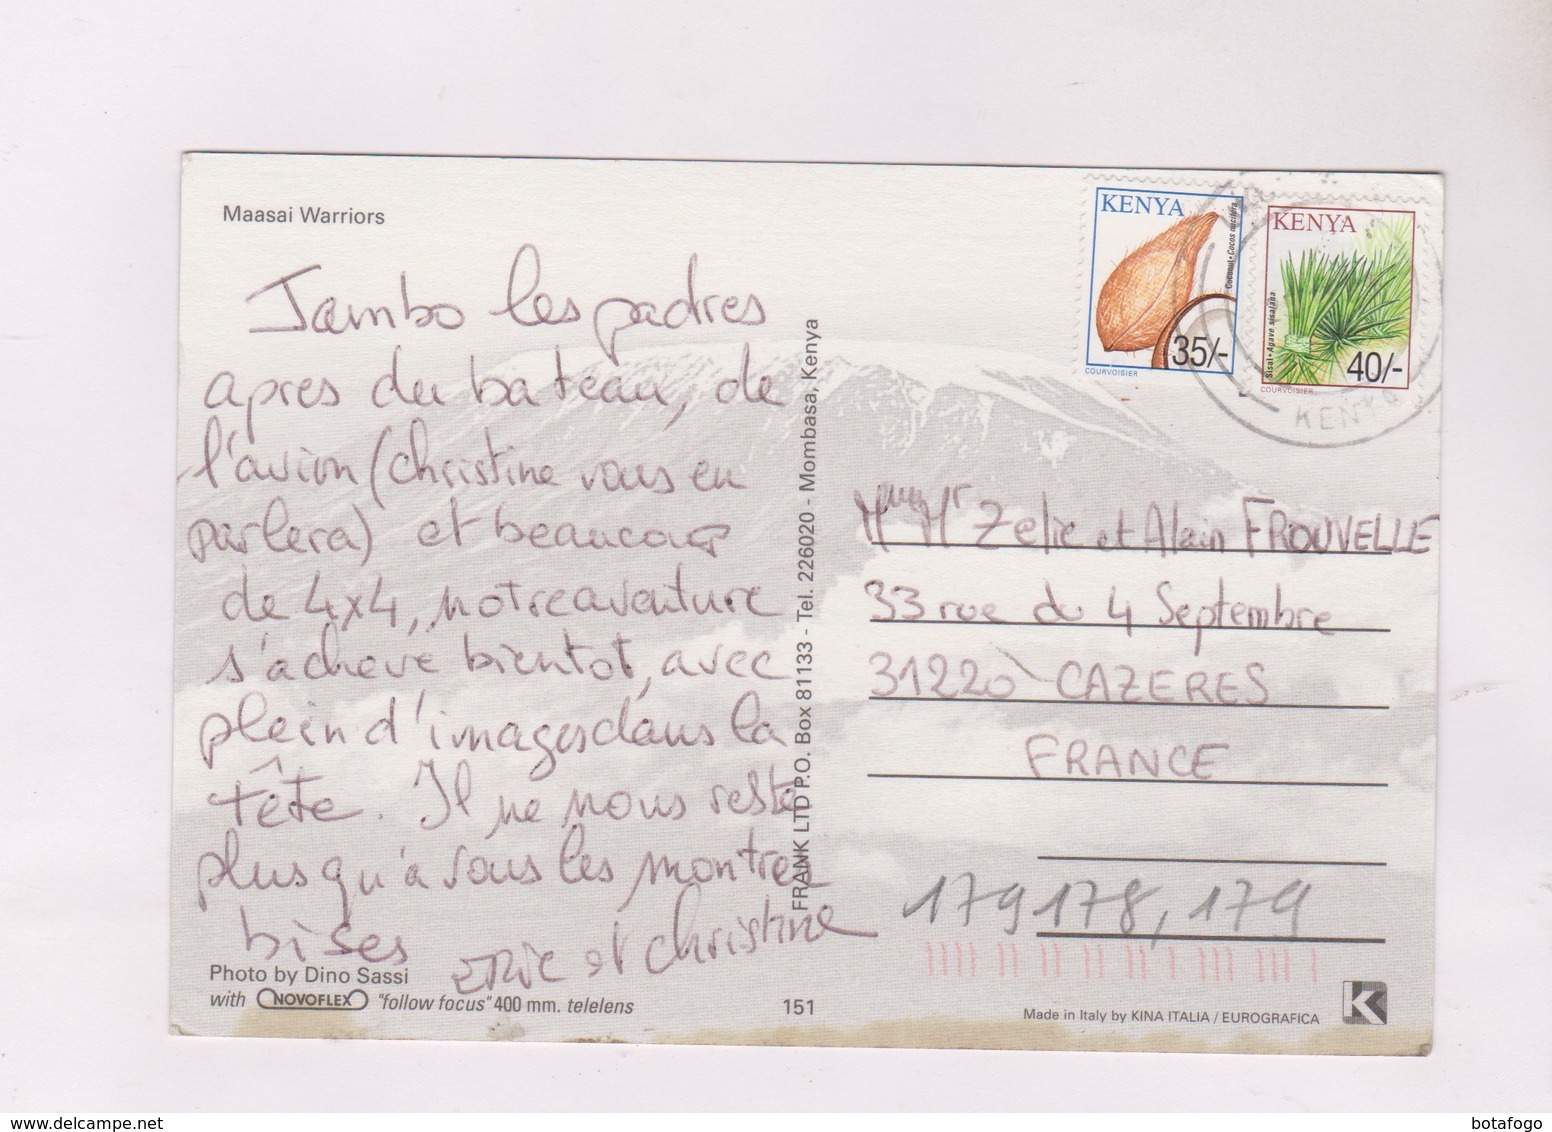 Maasai Warriors
Jambo les padres
apres du bateau, de
l'avion (christine vous en
parlera) et beaucoup
de 4x4, notre aventure
s'acheve bientot, avec
plein d'images dans la
tête. Il ne nous reste
plus qu'à vous les montrer
bises Eric et christine
Photo by Dino Sassi
with NOVOFLEX "follow focus" 400 mm. telelens
151
FRANK LTD P.O. Box 81133 - Tel. 226020 - Mombasa, Kenya
KENYA
Coconut • Cocos nucifera
35/-
COURVOISIER
KENYA
Sisal • Agave sisalana
40/-
COURVOISIER
KENYA
Mme Mr Zelie et Alain FROUVELLE
33 rue du 4 Septembre
31220 CAZERES
FRANCE
179178, 179
Made in Italy by KINA ITALIA / EUROGRAFICA
K
botafogo